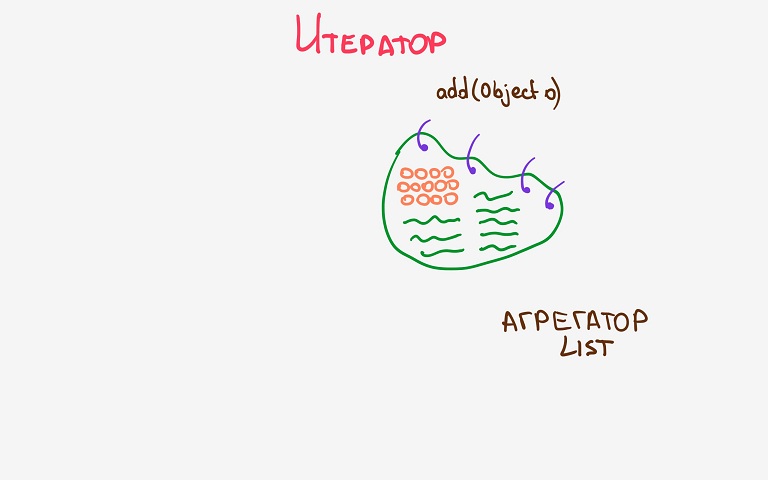 Итератор
add(Object o)
АГРЕГАТОР
LIST